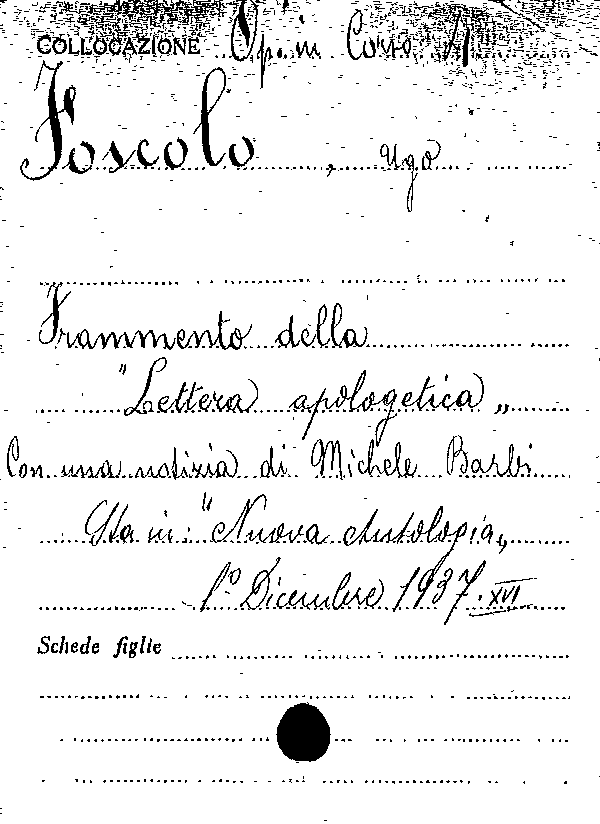 COLLOCAZIONE Op. in Corso A
Foscolo, Ugo
Frammento della
"Lettera apologetica„
Con una notizia di Michele Barbi
Sta in: "Nuova Antologia„
1º Dicembre 1937.XVI
Schede figlie